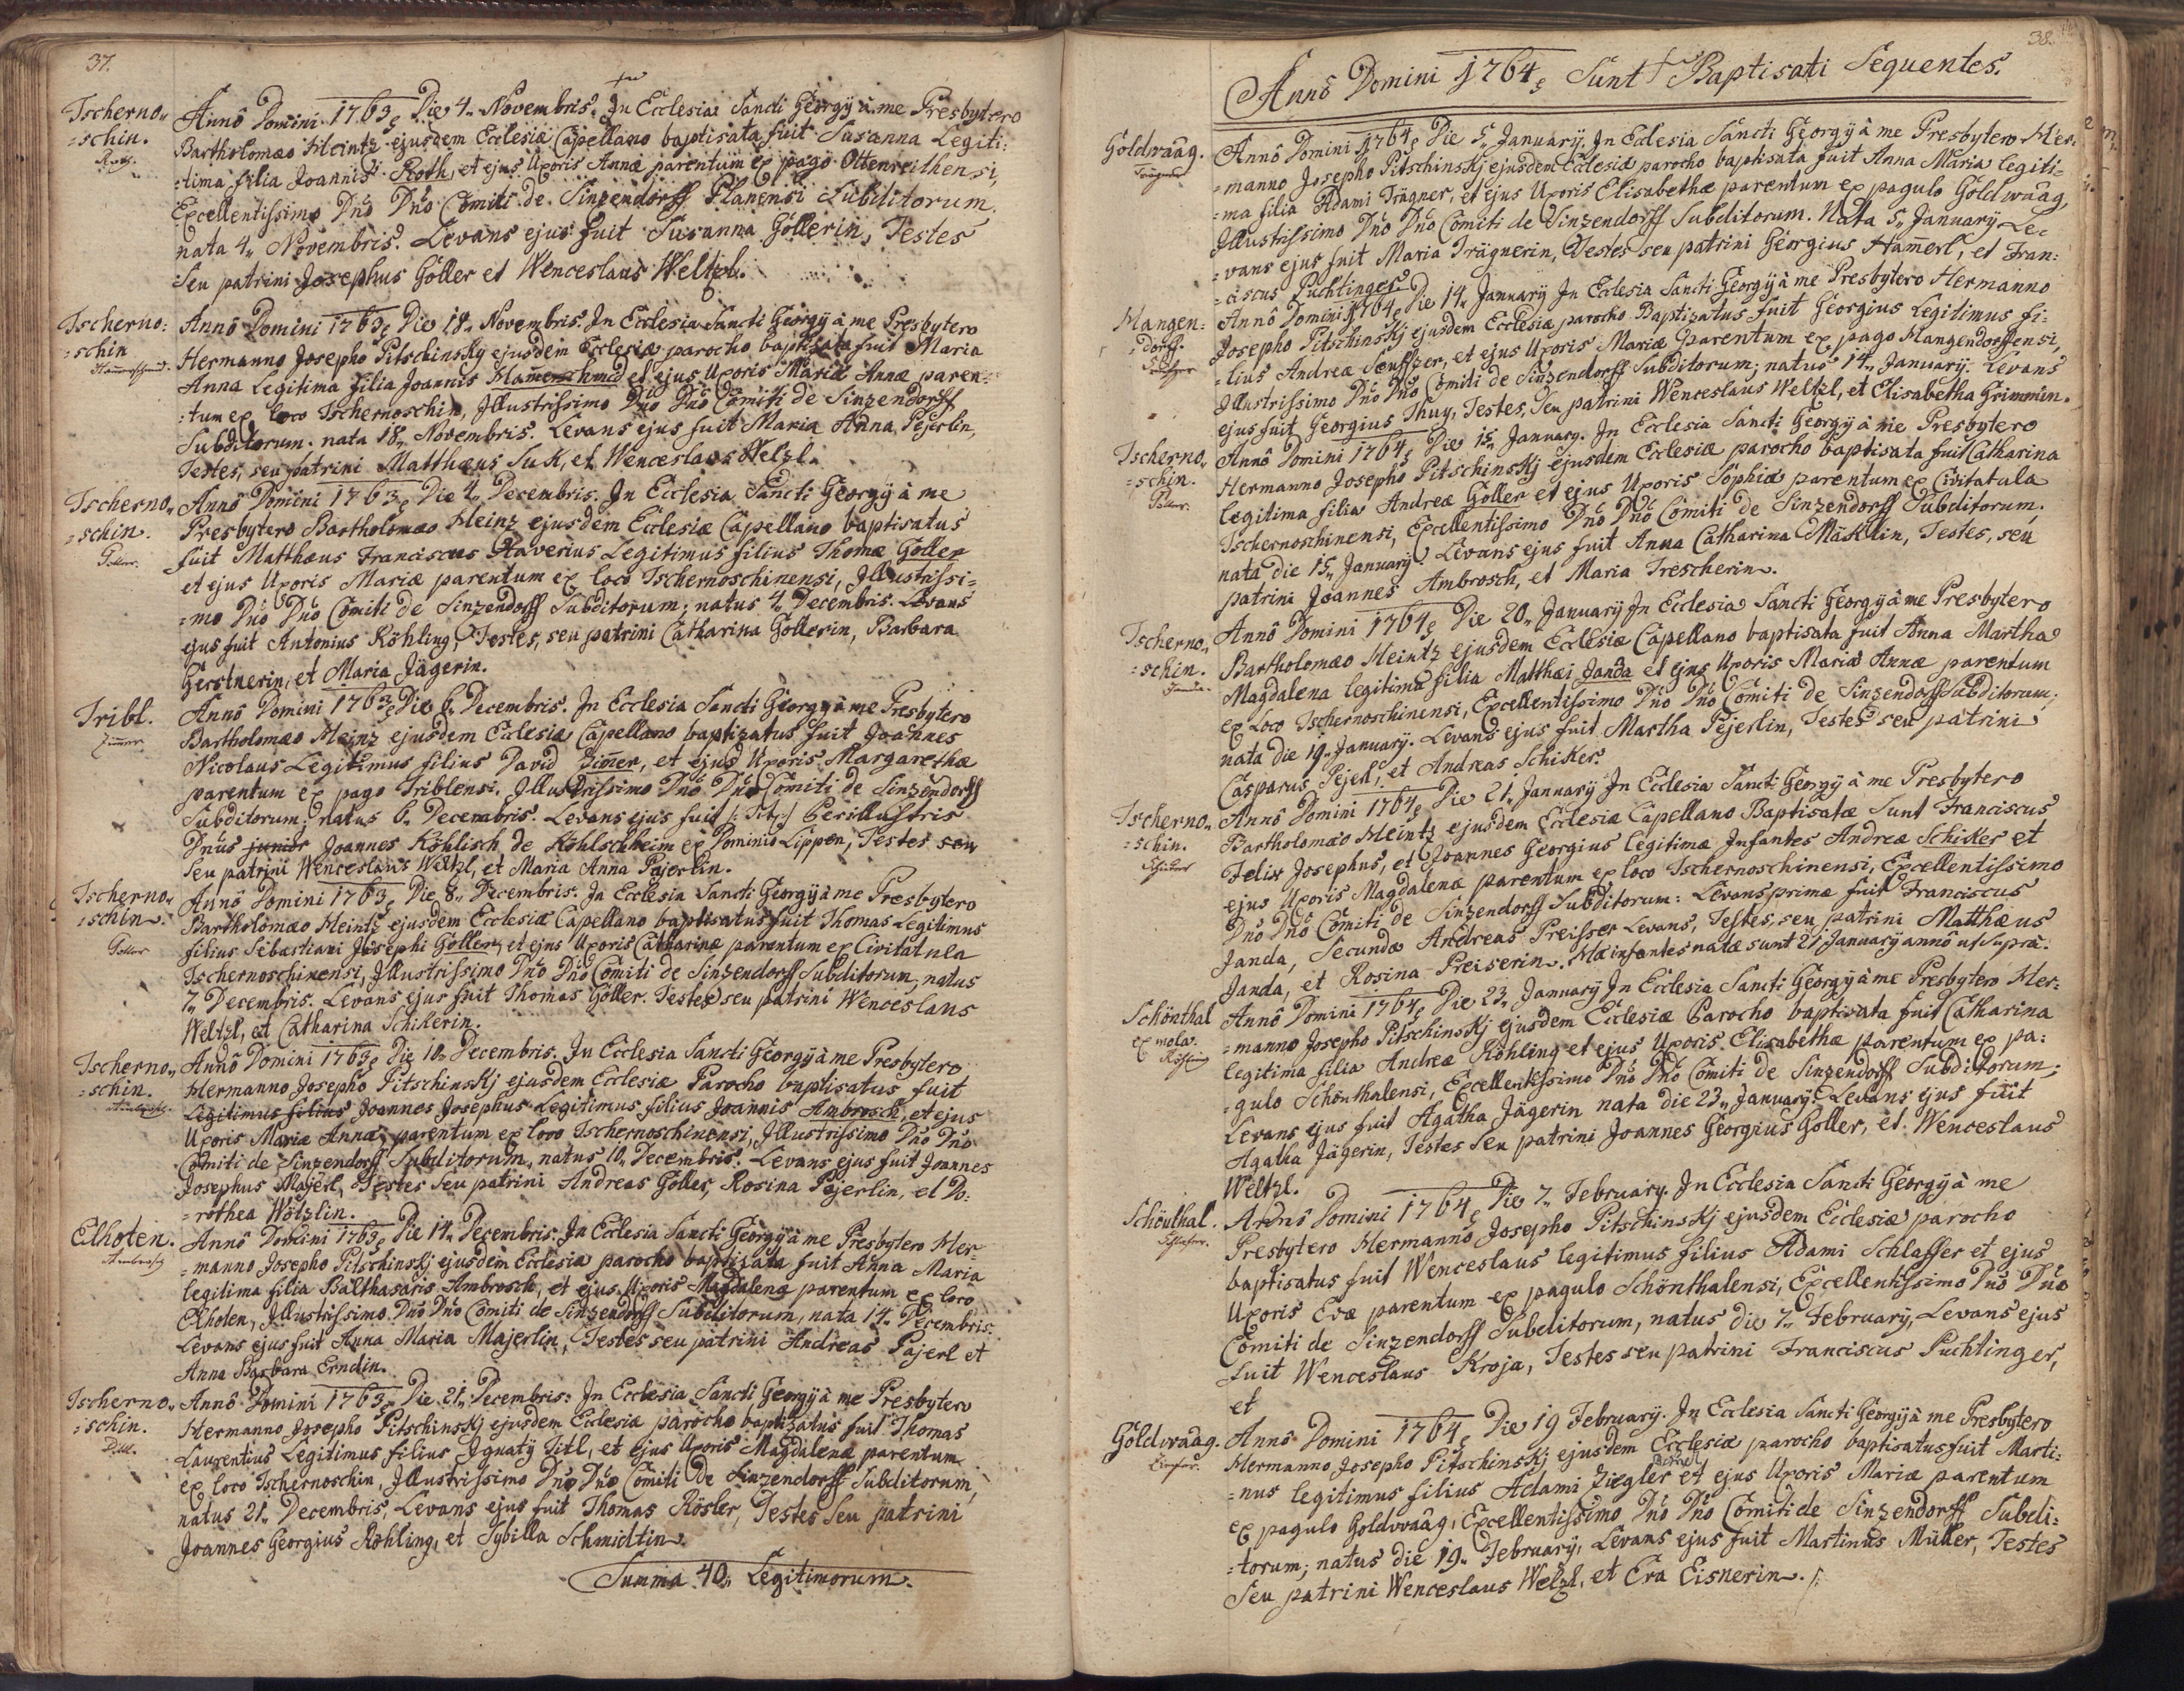 37.
Tscherno„
=schin.
Roth.
Annô Domini 1763 Die 4„ Novembris. Jn Ecclesia Sancti Georgÿ à me Presbytero
Bartholomæo Heintz ejusdem Ecclesiæ Capellano baptisata fuit Susanna Legiti:
=tima filia Joannis Roth, et ejus Uxoris Annæ parentum ex pago Ottenreithensi,
Excellentissimo Dnõ Dnõ Comiti de Sinzendorff Planensi Subditorum.
nata 4„ Novembris. Levans ejus fuit Susanna Göllerin, Testes
Seu patrini Josephus Göller et Wenceslaus Weltzl.
Tscherno:
=schin
Hamerschmid.
Annô Domini 1763 Die 18„ Novembris. Jn Ecclesia Sancti Georgÿ à me Presbytero
Hermanno Josepho Pitschinsky ejusdem Ecclesiæ parocho baptisata fuit Maria
Anna Legitima filia Joannis Hamerschmid et ejus Uxoris Mariæ Annæ paren:
:tum ex loco Tschernoschin, Jllustrissimo Dnõ Dnõ Comiti de Sinzendorff
Subditorum. nata 18„ Novembris. Levans ejus fuit Maria Anna Pejerlin,
Testes, seu patrini Matthæus Suk, et Wenceslaus Welzl.
Tscherno„
=schin.
Goller.
Annô Domini 1763 Die 4„ Decembris. Jn Ecclesia Sancti Georgÿ à me
Presbytero Bartholomæo Heinz ejusdem Ecclesiæ Capellano baptisatus
fuit Matthæus Franciscus Xaverius Legitimus filius Thomæ Goller
et ejus Uxoris Mariæ parentum ex loco Tschernoschinensi, Jllustrissi=
=mo Dnõ Dnõ Comiti de Sinzendorff Subditorum; natus 4„ Decembris. Levans
ejus fuit Antonius Röhling, Testes, seu patrini Catharina Göllerin, Barbara
Gerstnerin, et Maria Jägerin.
Tribl.
Zimmer.
Annô Domini 1763 Die 6„ Decembris. Jn Ecclesia Sancti Georgÿ à me Presbytero
Bartholomæo Heinz ejusdem Ecclesiæ Capellano baptizatus fuit Joannes
Nicolaus Legitimus filius David Zimer, et ejus Uxoris Margarethæ
parentum ex pago Triblensi. Jllustrissimo Dnõ Dnõ Comiti de Sinzendorff
Subditorum; natus 6„ Decembris. Levans ejus fuit /: Tit: :/ Perillustris
Dnũs junior Joannes Köhlisch de Köhlschheim ex Dominio Lippen, Testes seu
seu patrini Wenceslaus Weltzl, et Maria Anna Pajerlin.
Tscherno„
=schin.
Goller
Annô Domini 1763 Die 8„ Decembris. Jn Ecclesia Sancti Georgÿ à me Presbytero
Bartholomæo Heintz ejusdem Ecclesiæ Capellano baptisatus fuit Thomas Legitimus
filius Sebastiani Josephi Göller, et ejus Uxoris Catharinæ parentum ex Civitatula
Tschernoschinensi, Jllustrissimo Dnõ Dnõ Comiti de Sinzendorff Subditorum, natus
7„ Decembris. Levans ejus fuit Thomas Göller. Testes seu patrini Wenceslaus
Weltzl, et Catharina Schikerin.
Tscherno„
=schin.
Annô Domini 1763 Die 10„ Decembris. Jn Ecclesia Sancti Georgÿ à me Presbytero
Hermanno Josepho Pitschinskj ejusdem Ecclesiæ Parocho baptisatus fuit
Legitimus filius Joannes Josephus Legitimus filius Joannis Ambrosch, et ejus
Uxoris Mariæ Annæ, parentum ex loco Tschernoschinensi, Jllustrissimo Dnõ Dnõ
Comiti de Sinzendorff Subditorum, natus 10„ Decembris. Levans ejus fuit Joannes
Josephus Majerl, Testes seu patrini Andreas Göller, Rosina Pejerlin, et Do:
=rothea Wötzlin.
Elhoten.
Ambrosch
Annô Domini 1763 Die 14„ Decembris. Jn Ecclesia Sancti Georgÿ à me Presbytero Her-
=manno Josepho Pitschinskj ejusdem Ecclesiæ parocho baptizata fuit Anna Maria
legitima filia Balthasaris Ambrosch, et ejus Uxoris Magdalenæ parentum ex loco
Elhoten, Jllustrissimo Dnõ Dnõ Comiti de Sinzendorff Subditorum, nata 14„ Decembris.
Levans ejus fuit Anna Maria Majerlin, Testes seu patrini Andreas Pajerl et
Anna Barbara Erndin.
Tscherno„
=schin.
Annô Domini 1763 Die 21„ Decembris: Jn Ecclesia Sancti Georgÿ à me Presbytero
Hermanno Josepho Pitschinskj ejusdem Ecclesiæ parocho baptizatus fuit Thomas
Laurentius Legitimus filius Jgnatÿ Titl, et ejus Uxoris Magdalenæ parentum
ex loco Tschernoschin, Jllustrissimo Dnõ Dnõ Comiti de Sinzendorff Subditorum,
natus 21„ Decembris, Levans ejus fuit Thomas Rösler, Testes seu patrini
Joannes Georgius Röhling, et Sybilla Schmidtin.
Summa 40„ Legitimorum.
38.
Annô Domini 1764 Sunt Baptisati Sequentes.
Goldwaag.
Trägner
Annô Domini 1764 Die 5„ Januarÿ. Jn Ecclesia Sancti Georgÿ à me Presbytero Her:
=manno Josepho Pitschinskj ejusdem Ecclesiæ parocho baptisata fuit Anna Maria legiti=
=ma filia Adami Trägner, et ejus Uxoris Elisabethæ parentum ex pagulo Goldwaag,
Jllustrissimo Dnõ Dnõ Comiti de Sinzendorff Subditorum. Nata 5„ Januarÿ Le=
=vans ejus fuit Maria Trägnerin, Testes seu patrini Georgius Hamerl, et Fran:
=ciscus Puchtinger.
Mangen:
:dorff.
Annô Domini 1764 Die 14„ Januarÿ Jn Ecclesia Sancti Georgÿ à me Presbytero Hermanno
Josepho Pitschinskj ejusdem Ecclesiæ parocho Baptizatus fuit Georgius Legitimus fi:
=lius Andreæ Seuffzer, et ejus Uxoris Mariæ parentum ex pago Mangendorffensi,
Jllustrissimo Dnõ Dnõ Comiti de Sinzendorff Subditorum; natus 14„ Januarÿ. Levans
ejus fuit Georgius Thuy, Testes, seu patrini Wenceslaus Weltzl, et Elisabetha Grimmin.
Tscherno„
=schin.
Goller.
Annô Domini 1764 Die 15„ Januarÿ. Jn Ecclesia Sancti Georgÿ à me Presbytero
Hermanno Josepho Pitschinskj ejusdem Ecclesiæ parocho baptisata fuit Catharina
legitima filia Andreæ Göller et ejus Uxoris Sophiæ parentum ex Civitatula
Tschernoschinensi, Excellentissimo Dnõ Dnõ Comiti de Sinzendorff Subditorum,
nata die 15„ Januarÿ. Levans ejus fuit Anna Catharina Mäklin, Testes, seu
patrini Joannes Ambrosch, et Maria Trescherin.
Tscherno„
=schin.
Janda.
Annô Domini 1764 Die 20„ Januarÿ Jn Ecclesia Sancti Georgÿ à me Presbytero
Bartholomæo Heintz ejusdem Ecclesiæ Capellano baptisata fuit Anna Martha
Magdalena legitima filia Matthæi Janda et ejus Uxoris Mariæ Annæ parentum
ex Loco Tschernoschinensi, Excellentissimo Dnõ Dnõ Comiti de Sinzendorff Subditorum;
nata die 19„ Januarÿ. Levans ejus fuit Martha Pejerlin, Testes seu patrini
Casparus Pejerl, et Andreas Schiker.
Tscherno„
=schin.
Schicker
Annô Domini 1764 Die 21„ Januarÿ Jn Ecclesia Sancti Georgÿ à me Presbytero
Bartholomæo Heintz ejusdem Ecclesiæ Capellano Baptisatæ Sunt Franciscus
Felix Josephus, et Joannes Georgius legitimæ Jnfantes Andreæ Schiker et
ejus Uxoris Magdalenæ parentum ex loco Tschernoschinensi, Excellentissimo
Dnõ Dnõ Comiti de Sinzendorff Subditorum: Levans primæ fuit Franciscus
Janda, Secundæ Andreas Preisser Levans, Testes, seu patrini Matthæus
Janda, et Rosina Preiserin. Hæ infantes natæ sunt 21 Januarÿ annô ut suprà.
Schönthal
ex mola.
Röhling
Annô Domini 1764 Die 23„ Januarÿ Jn Ecclesia Sancti Georgÿ à me Presbytero Her:
=manno Josepho Pitschinskj ejusdem Ecclesiæ Parocho baptisata fuit Catharina
legitima filia Andreæ Röhling et ejus Uxoris Elisabethæ parentum ex pa:
=gulo Schönthalensi, Excellentissimo Dnõ Dnõ Comiti de Sinzendorff Subditorum;
Levans ejus fuit Agatha Jägerin nata die 23„ Januarÿ. Levans ejus fuit
Agatha Jägerin, Testes seu patrini Joannes Georgius Goller, et Wenceslaus
Weltzl.
Schönthal.
Schlaffer.
Annô Domini 1764 Die 7„ Februarÿ. Jn Ecclesia Sancti Georgÿ à me
Presbytero Hermanno Josepho Pitschinskj ejusdem Ecclesiæ parocho
baptisatus fuit Wenceslaus legitimus filius Adami Schlaffer et ejus
Uxoris Evæ parentum ex pagulo Schönthalensi, Excellentissimo Dnõ Dnõ
Comiti de Sinzendorff Subditorum, natus die 7„ Februarÿ, Levans ejus
fuit Wenceslaus Kroja, Testes seu patrini Franciscus Puchtinger,
et
Goldwaag.
Annô Domini 1764 Die 19 Februarÿ. Jn Ecclesia Sancti Georgÿ à me Presbytero
Hermanno Josepho Pitschinskj ejusdem Ecclesiæ parocho baptisatus fuit Marti:
=nus legitimus filius Adami Ziegler et ejus Uxoris Mariæ parentum
ex pagulo Goldwaag, Excellentissimo Dnõ Dnõ Comiti de Sinzendorff Subdi:
=torum; natus die 19„ Februarÿ, Levans ejus fuit Martinus Müller, Testes
Seu patrini Wenceslaus Welzl, et Eva Eisnerin.